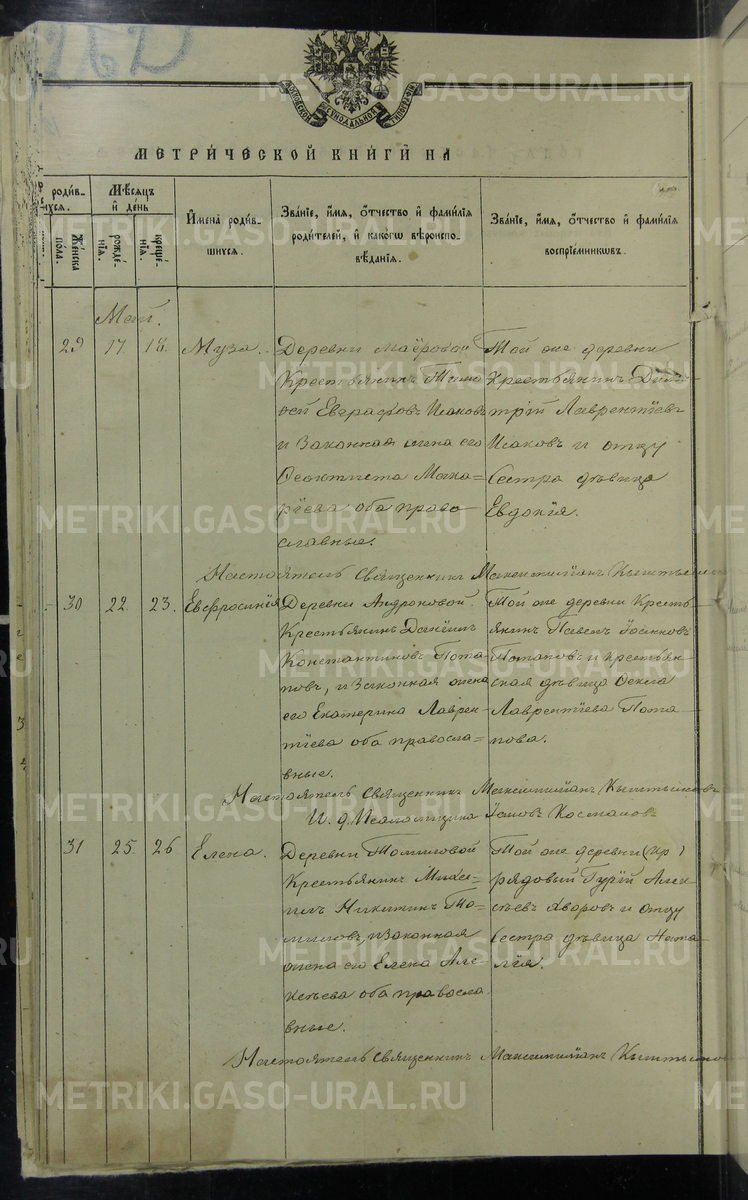 262
МОСКОВСКОЙ СѴНОДАЛЬНОЙ ТИПОГРАФІИ
МЕТРИ́ЧЕСКОЙ КНИ́ГИ НА
роди́в-
шихся.
Же́нска
по́ла.
Мѣ́сяцъ
и҆ де́нь
рожде́-
нїѧ.
креще́-
нїѧ.
И҆мена̀ роди́в-
шихсѧ.
Зва́нїе, и҆́мѧ, ѻ҆́тчество и҆ фами́лїѧ
роди́телей, и҆ како́гѡ вѣроиспо-
вѣ́данїѧ.
Зва́нїе, и҆́мѧ, ѻ҆́тчество и҆ фами́лїѧ
воспрїе́мникѡвъ.
Май.
29 17. 18. Муза.
Деревни Маёровой
Крестьянинъ Тимо
ѳей Евграфовъ Исаковъ
и Законная жена его
Ѳеоктиста Мака-
ріева оба право
славные.
Той же деревни
Крестьянинъ Дими
трій Лаврентіевъ
Исаковъ и отцу
Сестра дѣвица
Евдокія.
Настоятель Священникъ Максимиліанъ
30 22. 23. Евфросинія
Деревни Андроновой
Крестьянинъ Даніилъ
Константиновъ Пота-
повъ, и Законная жена
его Екатерина Лаврен-
тіева оба правосла-
вные.
Той же деревни Кресть-
янинъ Павелъ Іоанновъ
Потаповъ и Крестьян-
ская дѣвица Ѳекла
Лаврентіева Пота
пова.
Настоятель Священникъ Максимиліанъ
И. д. Псаломщика
31 25. 26 Елена.
Деревни Томиловой
Крестьянинъ Миха-
илъ Никитинъ То-
миловъ, и Законная
жена его Елена Але
ксѣева оба правосла
вные.
Той же деревни
рядовый Гурій Але
ксѣевъ и отцу
Сестра дѣвица Ната-
лія.
Настоятель Священникъ Максимиліанъ
METRIKI.GASO-URAL.RU